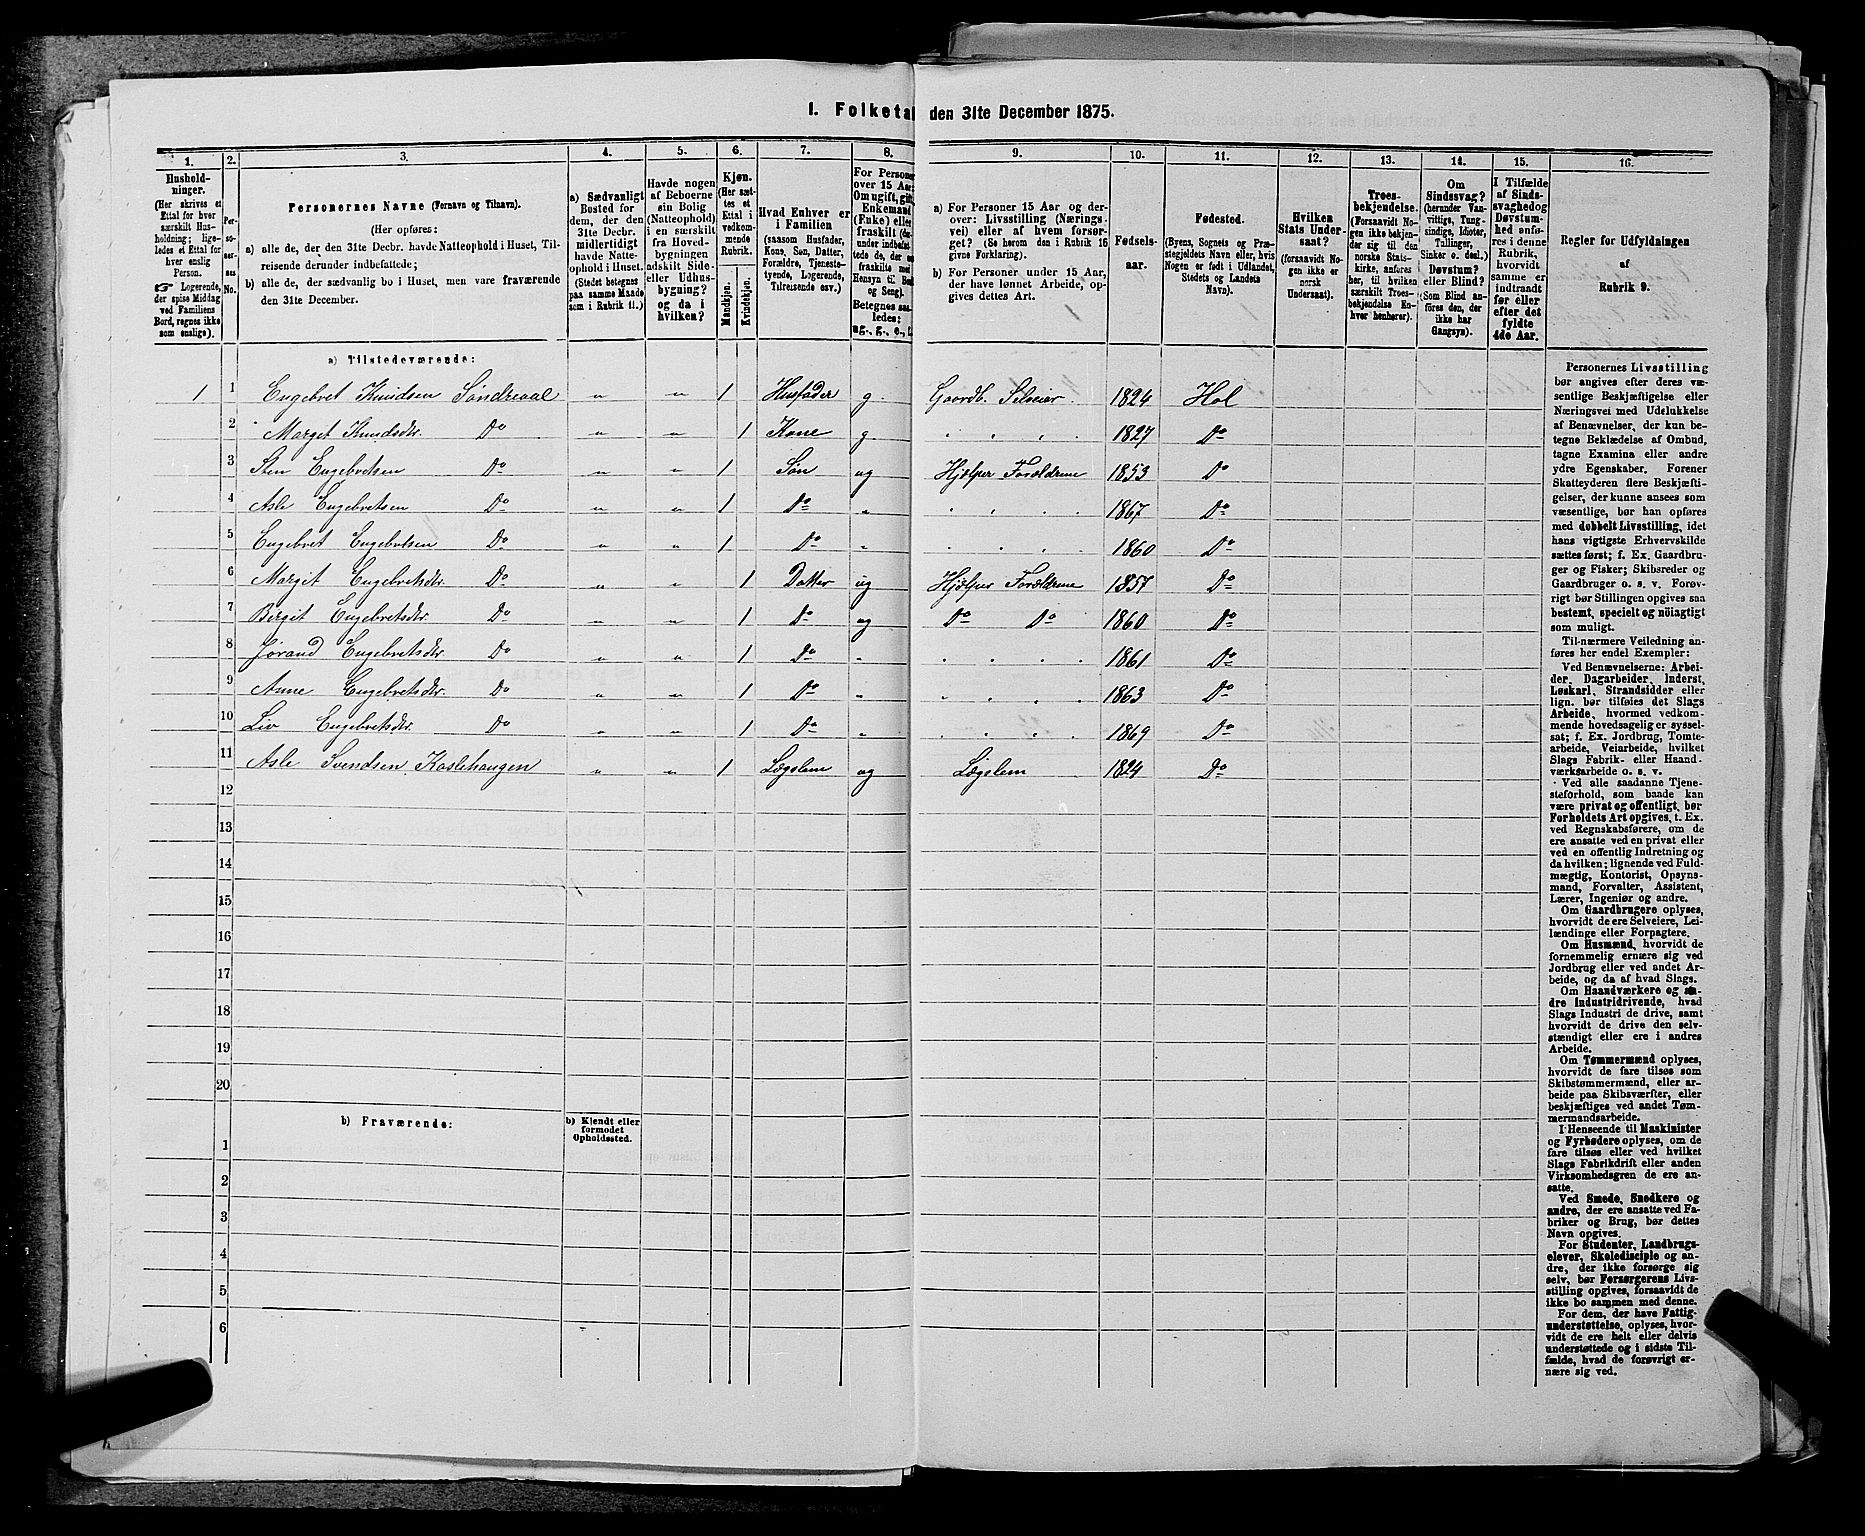 1. Folketal den 31te December 1875.
1. 2. 3. 4. 5. 6. 7. 8. 9. 10. 11. 12. 13. 14. 15. 16.
Hushold-
ninger.
(Her skrives et
Ettal for hver
særskilt Hus-
holdning; lige-
ledes et Ettal for
hver enslig
Person.
☞ Logerende,
der spise Middag
ved Familiens
Bord, regnes ikke
som enslige).
Per-
so-
ner-
nas
No.
Personernes Navne (Fornavn og Tilnavn).
(Her opføres:
a) alle de, der den 31te Decbr. havde Natteophold i Huset, Til-
reisende derunder indbefattede;
b) alle de, der sædvanlig bo i Huset, men vare fraværende
den 31te December.
a) Sædvanligt
Bosted for
dem, der den
31te Decbr.
midlertidigt
havde Natte-
ophold i Huset.
(Stedet betegnes
paa samme Maade
som i Rubrik 11.)
Havde nogen
af Beboerne
sin Bolig
(Natteophold)
i en særskilt
fra Hoved-
bygningen
adskilt Side-
eller Udhus-
bygning?
og da i
hvilken?
Kjøn.
(Her sæt-
tes et
Ettal i
vedkom-
mende
Rubrik.
Mandkjøn.
Kvindekjøn.
Hvad Enhver er
i Familien
(saasom Husfader,
Kone, Søn, Datter,
Forældre, Tjeneste-
tyende, Logerende,
Tilreisende osv.)
For Personer
over 15 Aar:
Om ugift, gift,
Enkemand
(Enke) eller
fraskilt (der-
under indbefat-
tede de, der ere
fraskilte med
Hensyn til Bord
og Seng).
Betegnes saa-
ledes:
ug., g., e., f.
a) For Personer 15 Aar og der-
over: Livsstilling (Nærings-
vei) eller af hvem forsør-
get? (Se herom den i Rubrik 16
givne Forklaring).
b) For Personer under 15 Aar,
der have lønnet Arbeide, op-
gives dettes Art.
Fødsels-
aar.
Fødested.
(Byens, Sognets og Præ-
stegjeldets Navn eller, hvis
Nogen er født i Udlandet,
Stedets og Landets
Navn).
Hvilken
Stats Under-
saat?
(forsaavidt No-
gen ikke er
norsk
Undersaat).
Troes-
bekjendelse.
(Forsaavidt No-
gen ikke bekjen-
der sig til den
norske Stats-
kirke, anføres
her, til hvilken
særskilt Troes-
bekjendelse En-
hver henhører).
Om
Sindssvag?
(herunder Van-
vittige, Tung-
sindige, Idioter,
Tullinger,
Sinker o. desl.)
Døvstum?
eller Blind?
(Som Blind an-
føres den, der
ikke har
Gangsyn).
I Tilfælde
af Sinds-
svaghed og
Døvstum-
hed anfø-
res i denne
Rubrik,
hvorvidt
samme er
indtraadt
før eller
efter det
fyldte
4de Aar.
Regler for Udfyldningen
af
Rubrik 9.
a) Tilstedeværende:
1 1 Engebret Knudsen Söndreaal " " 1 Husfader g. Gaardb. Selveier 1824 Hol
2 Marget Knudsdtr. Do " " 1 Kone g. " " " 1827 Do
3 Sten Engebretsen Do " " 1 Søn ug Hjælper Forældrene 1853 Do
4 Asle Engebretsen Do " " 1 Do " " " " 1867 Do
5 Engebret Engebretsen Do " " 1 Do " " " " 1860 Do
6 Margit Engebretsdtr. Do " " 1 Datter ug Hjælper Forældrene 1857 Do
7 Birgit Engebretsdtr. Do " " 1 Do ug Do Do 1860 Do
8 Jørand Engebretsdtr. Do " " 1 Do " " " " 1861 Do
9 Anne Engebretsdtr. Do " " 1 Do " " " " 1863 Do
10 Liv Engebretsdtr. Do " " 1 Do " " " " 1869 Do
11 Asle Svendsen Kaslehaugen " " 1 Lægslem ug Lægslem 1824 Do
12
13
14
15
16
17
18
19
20
b) Fraværende:
b) Kjendt eller
formodet
Opholdssted.
1
2
3
4
5
6
Personernes Livsstilling
bør angives efter deres væ-
sentlige Beskjæftigelse eller
Næringsvei med Udelukkelse
af Benævnelser, der kun be-
tegne Beklædelse af Ombud,
tagne Examina eller andre
ydre Egenskaber. Forener
Skatteyderen flere Beskjæfti-
gelser, der kunne ansees som
væsentlige, bør han opføres
med dobbelt Livsstilling, idet
hans vigtigste Erhvervskilde
sættes først; f. Ex. Gaardbru-
ger og Fisker; Skibsreder og
Gaardbruger o. s. v. Forøv-
rigt bør Stillingen opgives saa
bestemt, specielt og nöiagtigt
som muligt.
Til nærmere Veiledning an-
føres her endel Exempler:
Ved Benævnelserne: Arbei-
der, Dagarbeider, Inderst,
Løskarl, Strandsidder eller
lign. bør tilføies det Slags
Arbeide, hvormed vedkom-
mende hovedsagelig er syssel-
sat; f. Ex. Jordbrug, Tomte-
arbeide, Veiarbeide, hvilket
Slags Fabrik- eller Haand-
værksarbeide o. s. v.
Ved alle saadanne Tjene-
steforhold, som baade kan
være privat og offentligt, bør
Forholdets Art opgives, t. Ex.
ved Regnskabsførere, om de
ere ansatte ved en privat eller
ved en offentlig Indretning og
da hvilken; lignende ved Fuld-
mægtig, Kontorist, Opsyns-
mand, Forvalter, Assistent,
Lærer, Ingeniør og andre.
Om Gaardbrugere oplyses,
hvorvidt de ere Selveiere, Lei-
lændinge eller Forpagtere.
Om Husmænd, hvorvidt de
fornemmelig ernære sig ved
Jordbrug eller ved andet Ar-
beide, og da af hvad Slags.
Om Haandværkere og an-
dre Industridrivende, hvad
Slags Industri de drive, samt
hvorvidt de drive den selv-
stændigt eller ere i andres
Arbeide.
Om Tømmermænd oplyses,
hvorvidt de fare tilsøs som
Skibstømmermænd, eller ar-
beide paa Skibsværfter, eller
beskjæftiges ved andet Tøm-
mermandsarbeide.
I Henseende til Maskinister
og Fyrbødere oplyses, om de
fare tilsøs eller ved hvilket
Slags Fabrikdrift eller anden
Virksomhedsgren de ere an-
satte.
Ved Smede, Snedkere og
andre, der ere ansatte ved Fa-
briker og Brug, bør dettes
Navn opgives.
For Studenter, Landbrugs-
elever, Skoledisciple og an-
dre, der ikke forsørge sig
selv, bør Forsørgerens Livs-
stilling opgives, forsaavidt de
ikke bo sammen med denne.
For dem, der have Fattig-
understøttelse, oplyses, hvor-
vidt de ere helt eller delvis
understøttede og i sidste Til-
fælde, hvad de forøvrigt er-
nære sig ved.